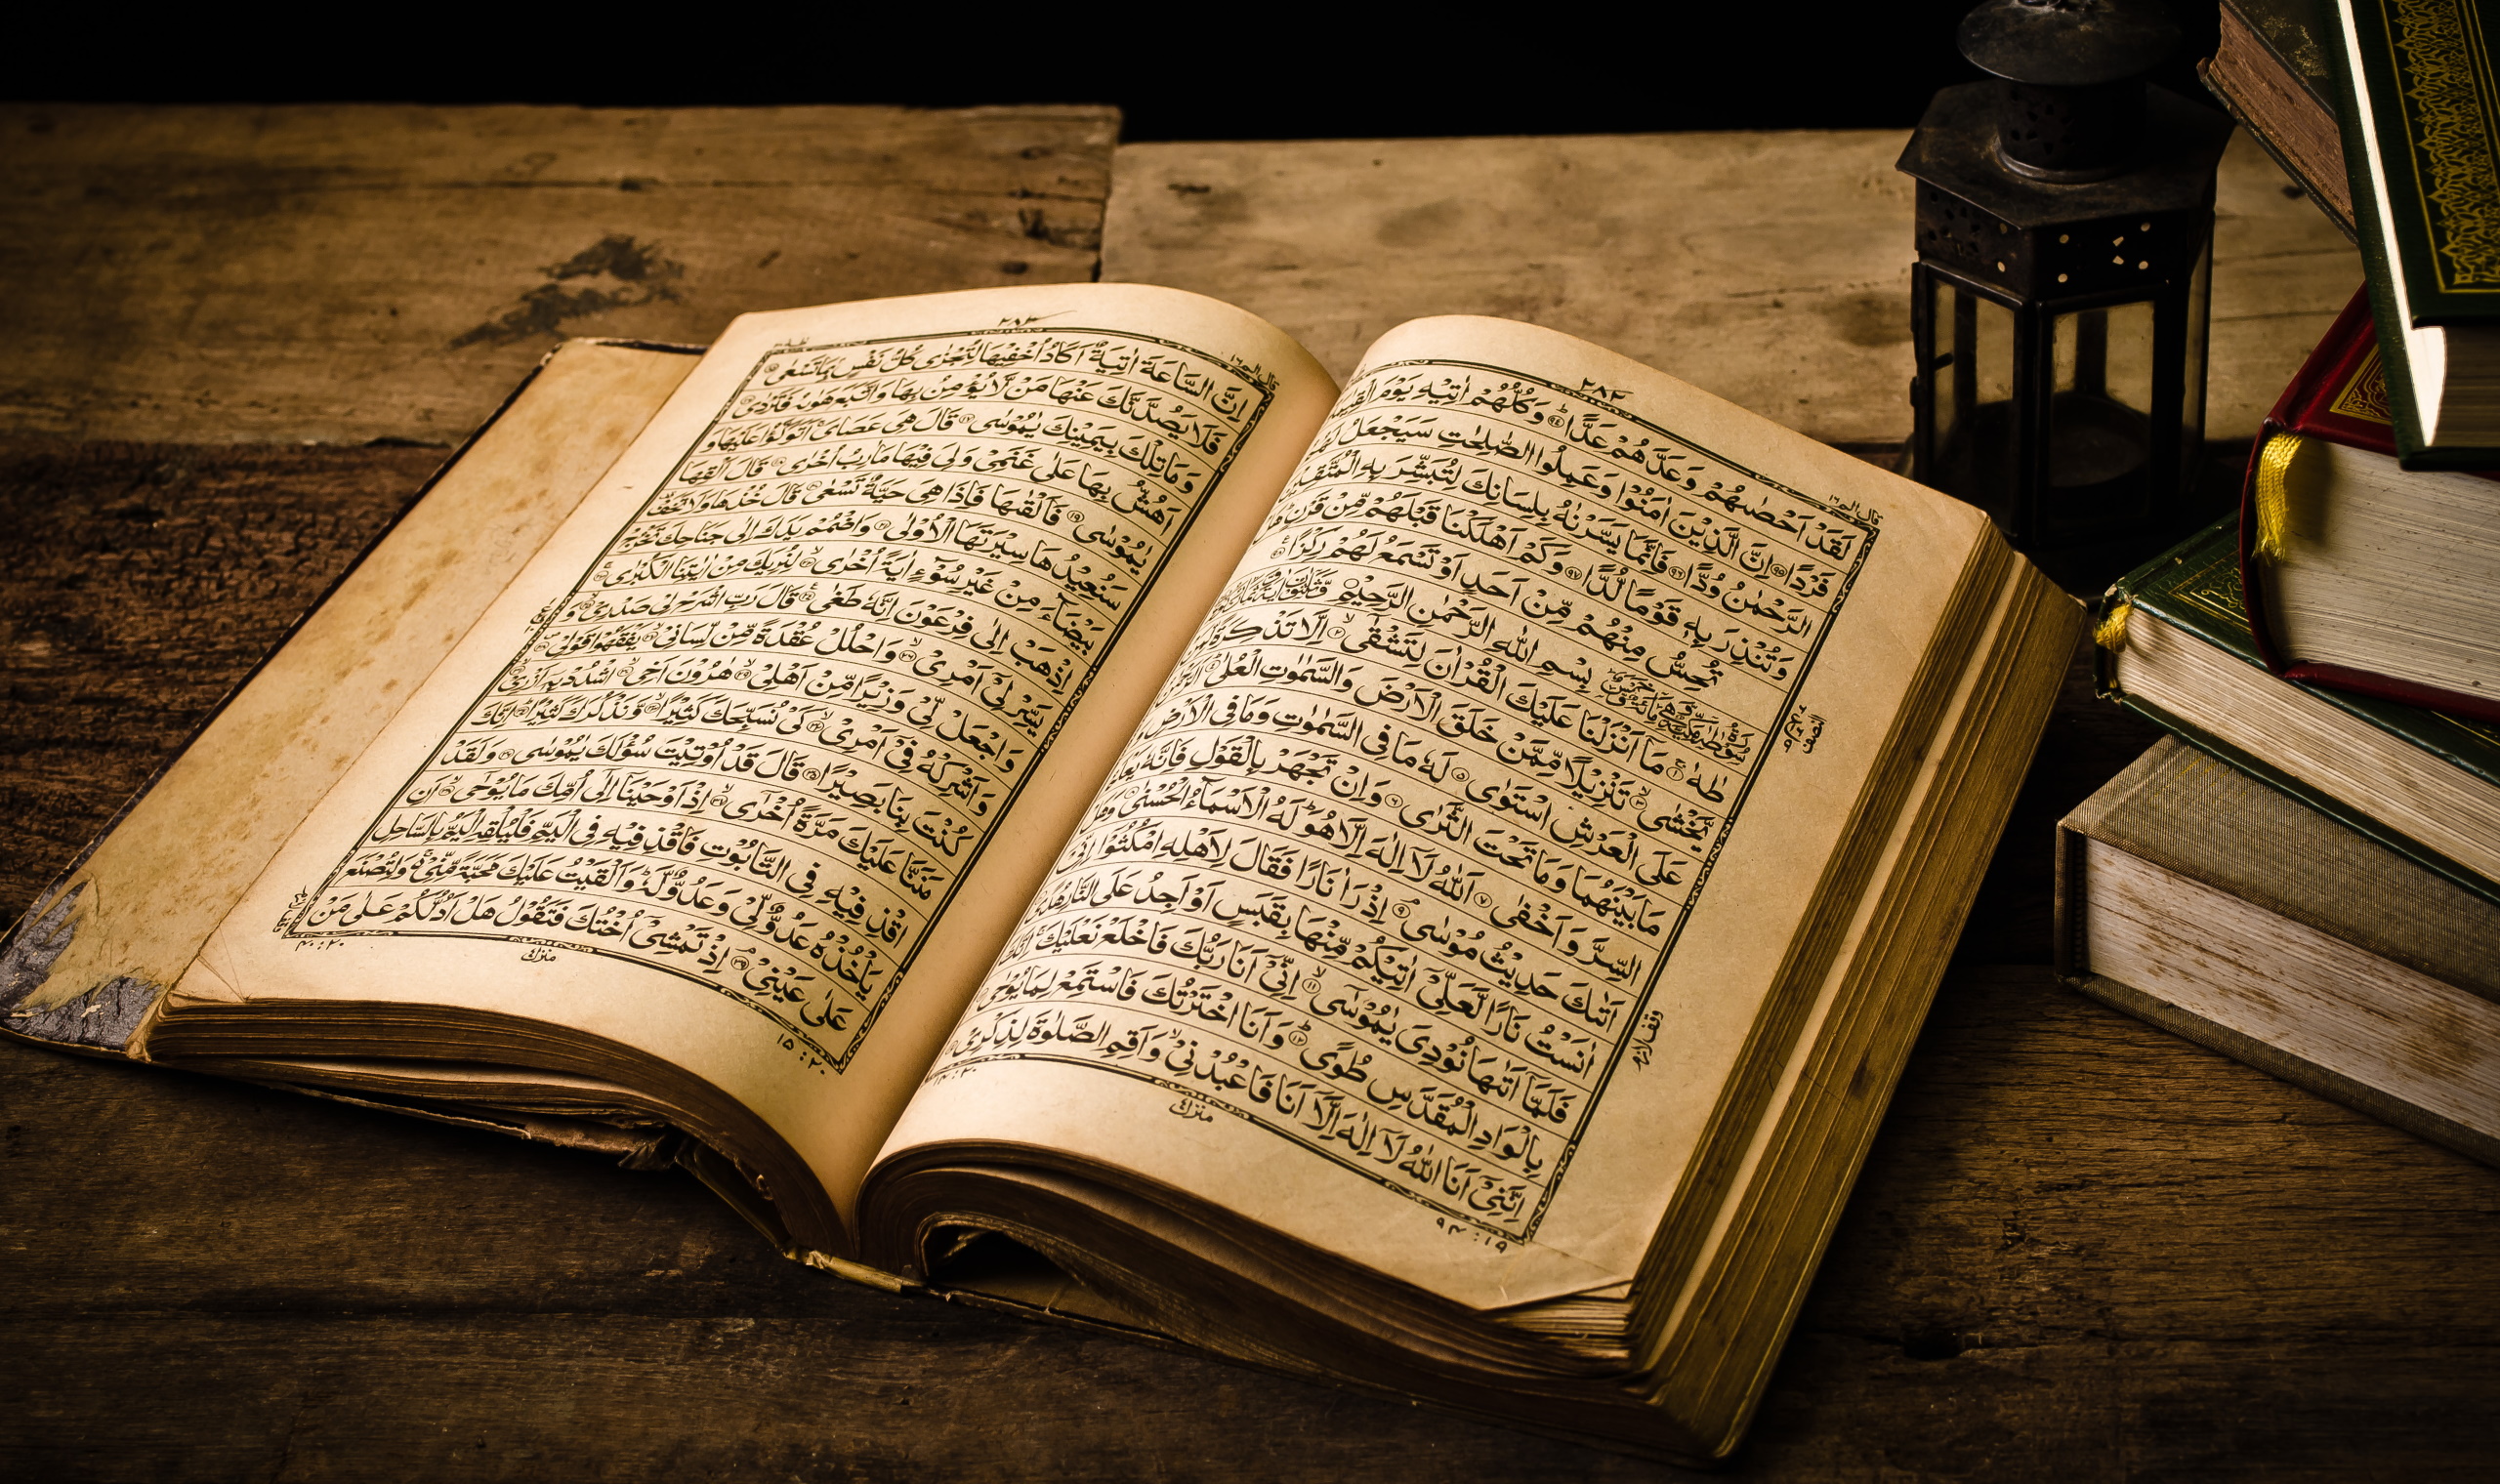 ٢٨٢
قال الم ١٦
لَقَدْ اَحْصٰىهُمْ وَعَدَّهُمْ عَدًّا ۝٩٤ وَكُلُّهُمْ اٰتِيْهِ يَوْمَ الْقِيٰمَةِ
فَرْدًا ۝٩٥ اِنَّ الَّذِيْنَ اٰمَنُوْا وَعَمِلُوا الصّٰلِحٰتِ سَيَجْعَلُ لَهُمُ
الرَّحْمٰنُ وُدًّا ۝٩٦ فَاِنَّمَا يَسَّرْنٰهُ بِلِسَانِكَ لِتُبَشِّرَ بِهِ الْمُتَّقِيْنَ
وَتُنْذِرَ بِهٖ قَوْمًا لُّدًّا ۝٩٧ وَكَمْ اَهْلَكْنَا قَبْلَهُمْ مِّنْ قَرْنٍ هَلْ
تُحِسُّ مِنْهُمْ مِّنْ اَحَدٍ اَوْ تَسْمَعُ لَهُمْ رِكْزًا
بِسْمِ اللّٰهِ الرَّحْمٰنِ الرَّحِيْمِ
طٰهٰ ۝١ مَا اَنْزَلْنَا عَلَيْكَ الْقُرْاٰنَ لِتَشْقٰى ۝٢ اِلَّا تَذْكِرَةً لِّمَنْ
يَّخْشٰى ۝٣ تَنْزِيْلًا مِّمَّنْ خَلَقَ الْاَرْضَ وَالسَّمٰوٰتِ الْعُلٰى ۝٤ اَلرَّحْمٰنُ
عَلَى الْعَرْشِ اسْتَوٰى ۝٥ لَهٗ مَا فِي السَّمٰوٰتِ وَمَا فِي الْاَرْضِ
مَا بَيْنَهُمَا وَمَا تَحْتَ الثَّرٰى ۝٦ وَاِنْ تَجْهَرْ بِالْقَوْلِ فَاِنَّهٗ يَعْلَمُ
السِّرَّ وَاَخْفٰى ۝٧ اَللّٰهُ لَا اِلٰهَ اِلَّا هُوَ ؕ لَهُ الْاَسْمَآءُ الْحُسْنٰى ۝٨ وَهَلْ
اَتٰىكَ حَدِيْثُ مُوْسٰى ۝٩ اِذْ رَاٰ نَارًا فَقَالَ لِاَهْلِهِ امْكُثُوْٓا اِنِّيْٓ
اٰنَسْتُ نَارًا لَّعَلِّيْٓ اٰتِيْكُمْ مِّنْهَا بِقَبَسٍ اَوْ اَجِدُ عَلَى النَّارِ هُدًى
فَلَمَّآ اَتٰىهَا نُوْدِيَ يٰمُوْسٰى ۝١١ اِنِّيْٓ اَنَا رَبُّكَ فَاخْلَعْ نَعْلَيْكَ ۚ اِنَّكَ
بِالْوَادِ الْمُقَدَّسِ طُوًى ۝١٢ وَاَنَا اخْتَرْتُكَ فَاسْتَمِعْ لِمَا يُوْحٰى
اِنَّنِيْٓ اَنَا اللّٰهُ لَآ اِلٰهَ اِلَّآ اَنَا فَاعْبُدْنِيْ ۙ وَاَقِمِ الصَّلٰوةَ لِذِكْرِيْ
النصف
وقف لازم
٩٤:١٩
١٤:٢٠
منزل ٤
٢٨٣
قال الم ١٦
اِنَّ السَّاعَةَ اٰتِيَةٌ اَكَادُ اُخْفِيْهَا لِتُجْزٰى كُلُّ نَفْسٍ بِمَا تَسْعٰى ۝١٥
فَلَا يَصُدَّنَّكَ عَنْهَا مَنْ لَّا يُؤْمِنُ بِهَا وَاتَّبَعَ هَوٰىهُ فَتَرْدٰى ۝١٦
وَمَا تِلْكَ بِيَمِيْنِكَ يٰمُوْسٰى ۝١٧ قَالَ هِيَ عَصَايَ ۚ اَتَوَكَّؤُا عَلَيْهَا وَ
اَهُشُّ بِهَا عَلٰى غَنَمِيْ وَلِيَ فِيْهَا مَاٰرِبُ اُخْرٰى ۝١٨ قَالَ اَلْقِهَا
يٰمُوْسٰى ۝١٩ فَاَلْقٰىهَا فَاِذَا هِيَ حَيَّةٌ تَسْعٰى ۝٢٠ قَالَ خُذْهَا وَلَا تَخَفْ
سَنُعِيْدُهَا سِيْرَتَهَا الْاُوْلٰى ۝٢١ وَاضْمُمْ يَدَكَ اِلٰى جَنَاحِكَ تَخْرُجْ
بَيْضَآءَ مِنْ غَيْرِ سُوْٓءٍ اٰيَةً اُخْرٰى ۝٢٢ لِنُرِيَكَ مِنْ اٰيٰتِنَا الْكُبْرٰى ۝٢٣
اِذْهَبْ اِلٰى فِرْعَوْنَ اِنَّهٗ طَغٰى ۝٢٤ قَالَ رَبِّ اشْرَحْ لِيْ صَدْرِيْ ۝٢٥ وَ
يَسِّرْ لِيْٓ اَمْرِيْ ۝٢٦ وَاحْلُلْ عُقْدَةً مِّنْ لِّسَانِيْ ۝٢٧ يَفْقَهُوْا قَوْلِيْ ۝٢٨
وَاجْعَلْ لِّيْ وَزِيْرًا مِّنْ اَهْلِيْ ۝٢٩ هٰرُوْنَ اَخِي ۝٣٠ اشْدُدْ بِهٖٓ اَزْرِيْ ۝٣١
وَاَشْرِكْهُ فِيْٓ اَمْرِيْ ۝٣٢ كَيْ نُسَبِّحَكَ كَثِيْرًا ۝٣٣ وَّنَذْكُرَكَ كَثِيْرًا ۝٣٤ اِنَّكَ
كُنْتَ بِنَا بَصِيْرًا ۝٣٥ قَالَ قَدْ اُوْتِيْتَ سُؤْلَكَ يٰمُوْسٰى ۝٣٦ وَلَقَدْ
مَنَنَّا عَلَيْكَ مَرَّةً اُخْرٰٓى ۝٣٧ اِذْ اَوْحَيْنَآ اِلٰٓى اُمِّكَ مَا يُوْحٰٓى ۝٣٨ اَنِ
اقْذِفِيْهِ فِي التَّابُوْتِ فَاقْذِفِيْهِ فِي الْيَمِّ فَلْيُلْقِهِ الْيَمُّ بِالسَّاحِلِ
يَاْخُذْهُ عَدُوٌّ لِّيْ وَعَدُوٌّ لَّهٗ ؕ وَاَلْقَيْتُ عَلَيْكَ مَحَبَّةً مِّنِّيْ ۚ وَلِتُصْنَعَ
عَلٰى عَيْنِيْ ۝٣٩ اِذْ تَمْشِيْٓ اُخْتُكَ فَتَقُوْلُ هَلْ اَدُلُّكُمْ عَلٰى مَنْ
١٥:٢٠
٤٠:٢٠
منزل ٤